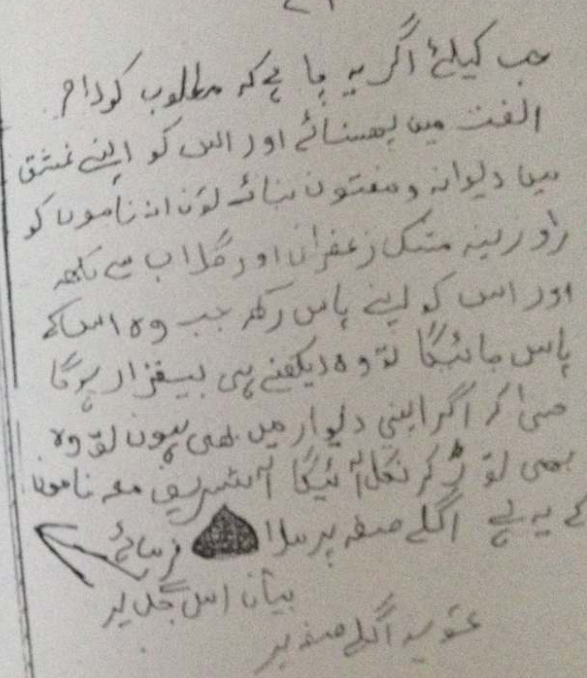 حب کیلئے اگر یہ چاہے کہ مطلوب کو دام
الفت میں پھسنائے اور اس کو اپنے عشق
میں دیوانہ و مفتون بنائے تو ان ناموں کو
مشک زعفران اور گلاب سے لکھ
اور اس کو اپنے پاس رکھ جب وہ اس کے
پاس جائیگا تو وہ دیکھتے ہی بیقرار ہوگا
اگر اہنی دیوار میں بھی ہوں تو وہ
بھی توڑ کر نکل آئیگا معہ ناموں
کے یہ ہے اگلے صفہ پر فرمائے
اس جگہ پر
اگلے صفہ پر